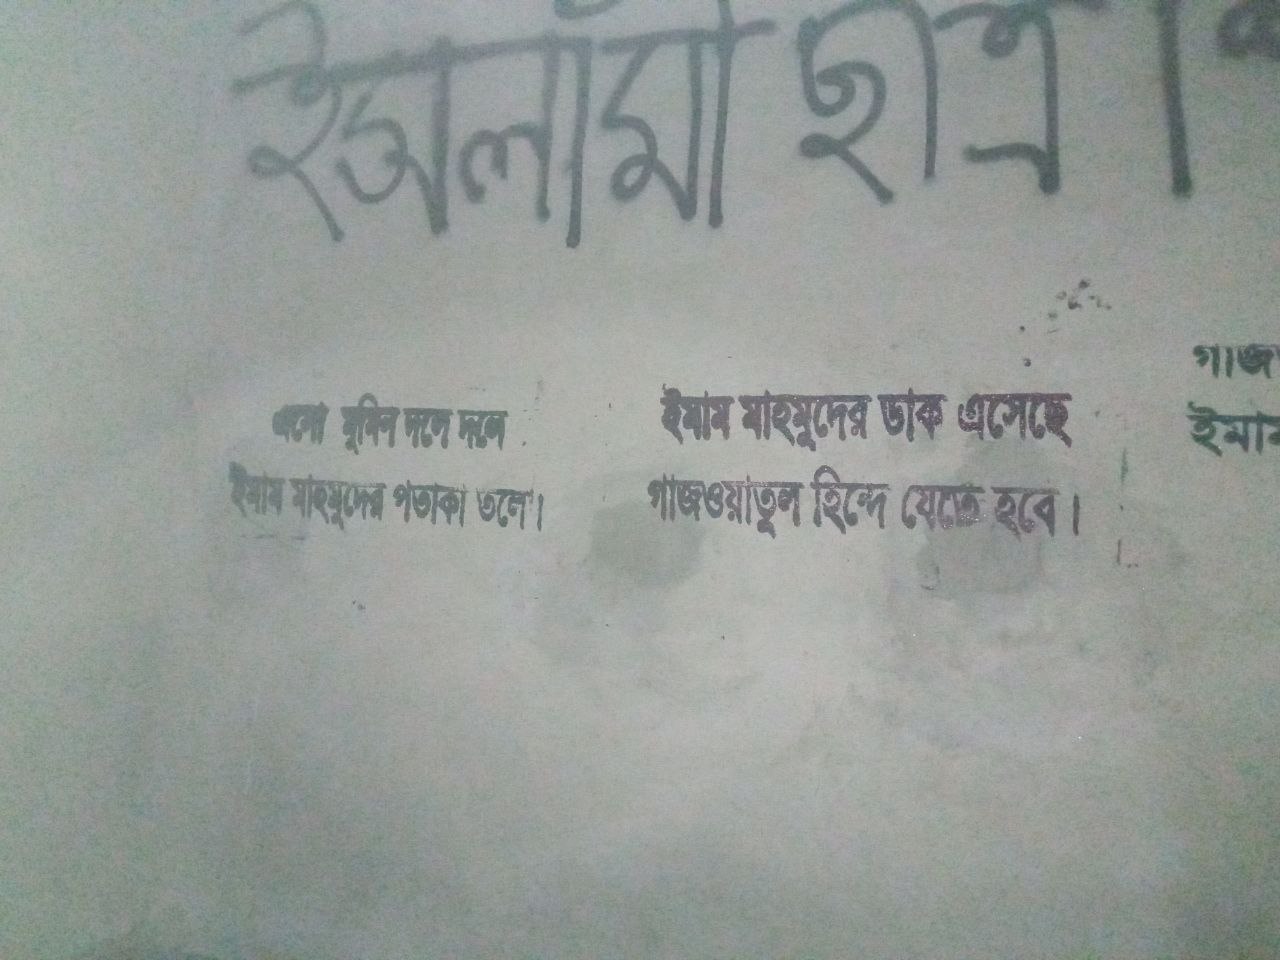 ইসলামী ছাত্র
এসো মুমিন দলে দলে
ইমাম মাহমুদের পতাকা তলে।
ইমাম মাহমুদের ডাক এসেছে
গাজওয়াতুল হিন্দে যেতে হবে।